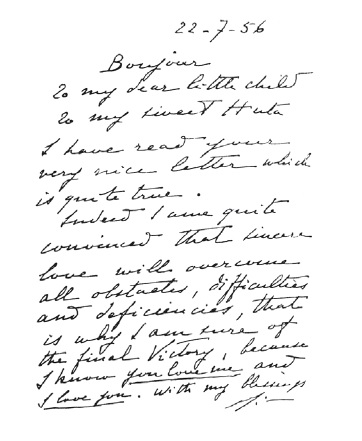 22-7-56
Bonjour
to my dear little child
to my sweet Huta
I have read your
very nice letter which
is quite true.
Indeed I am quite
convinced that sincere
love will overcome
all obstacles, difficulties
and deficiencies, that
is why I am sure of
the final Victory, because
I know you love me and
I love you. With my blessings